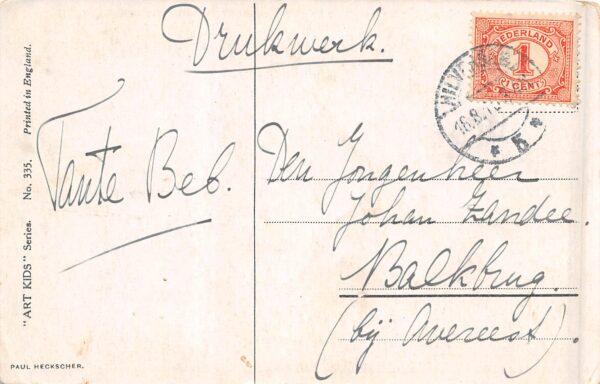 Drukwerk.
Tante Beb.
Den Jongenheer
Johan Zandee.
Balkbrug.
(bij Avereest).
NEDERLAND
1
(1 CENT)
16.8.
* 5 *
"ART KIDS" Series. No. 335. Printed in England.
PAUL HECKSCHER.